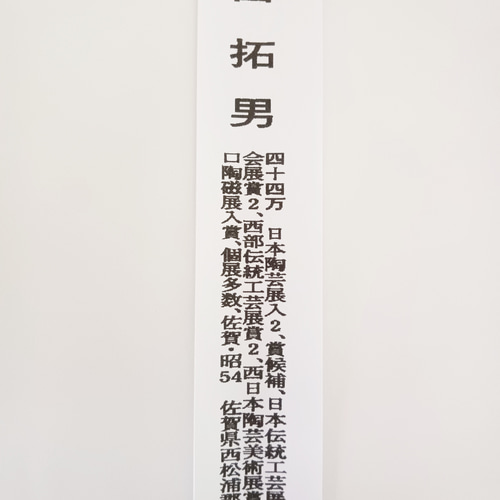 拓男
四十四万 日本陶芸展入2、賞候補、日本伝統工芸展
会展賞2、西部伝統工芸展賞2、西日本陶芸美術展賞
口陶磁展入賞、個展多数、佐賀・昭54 佐賀県西松浦郡